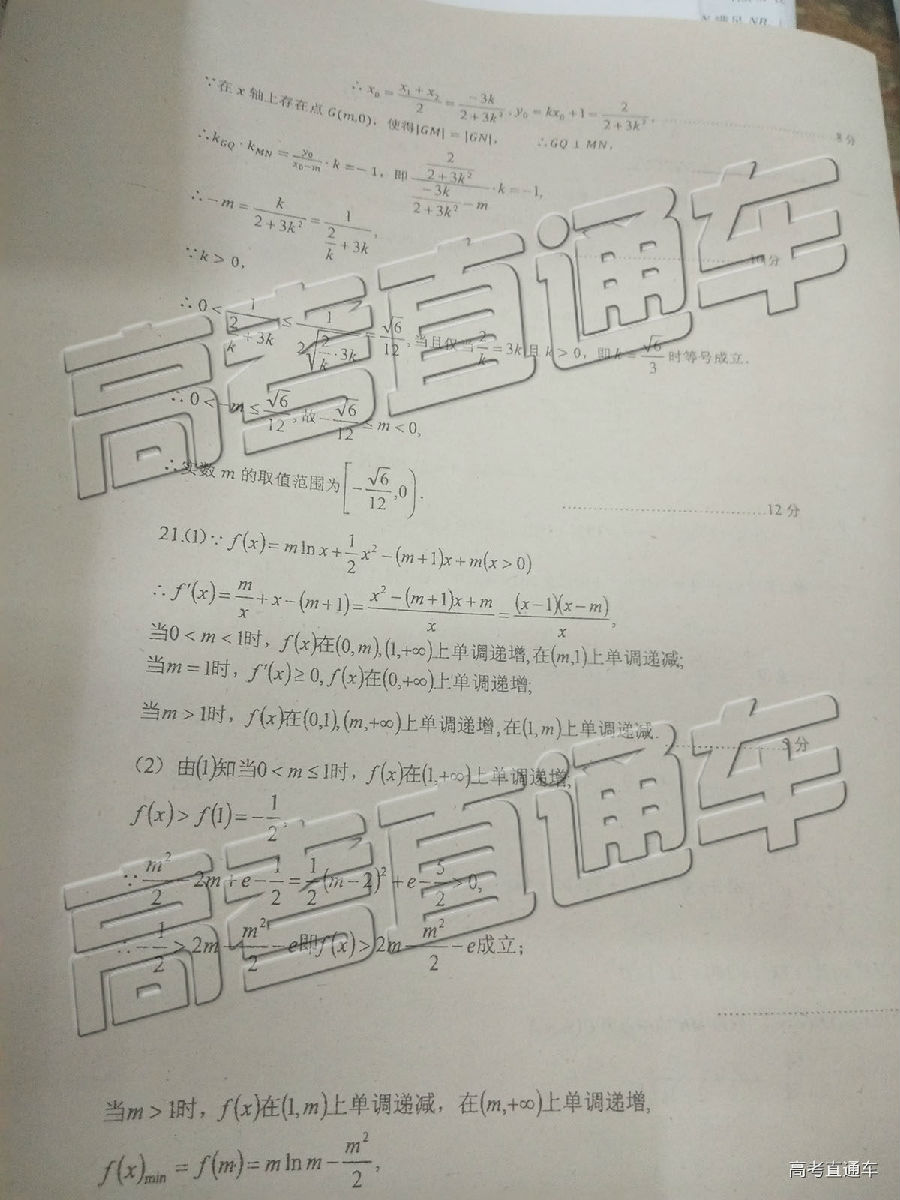 ∴ x₀ = (x₁ + x₂)/2 = -3k/(2 + 3k²), y₀ = kx₀ + 1 = 2/(2 + 3k²), ……8分
∵在 x 轴上存在点 G(m,0), 使得|GM| = |GN|, ∴GQ ⊥ MN,
∴k_GQ · k_MN = y₀/(x₀-m) · k = -1, 即 (2/(2 + 3k²))/(-3k/(2 + 3k²) - m) · k = -1,
∴ -m = k/(2 + 3k²) = 1/(2/k + 3k),
∵k > 0, ……10分
∴ 0 < 1/(2/k + 3k) ≤ 1/(2√(2/k · 3k)) = √6/12, 当且仅当 2/k = 3k 且 k > 0, 即 k = √6/3 时等号成立.
∴ 0 < -m ≤ √6/12, 故 -√6/12 ≤ m < 0,
∴实数 m 的取值范围为[-√6/12, 0).
……12分
21.(1)∵ f(x) = m ln x + 1/2 x² - (m+1)x + m(x > 0)
∴ f′(x) = m/x + x - (m+1) = (x² - (m+1)x + m)/x = (x-1)(x-m)/x,
当0 < m < 1时, f(x)在(0, m), (1,+∞)上单调递增, 在(m,1)上单调递减;
当m = 1时, f′(x) ≥ 0, f(x)在(0,+∞)上单调递增;
当m > 1时, f(x)在(0,1), (m,+∞)上单调递增, 在(1, m)上单调递减. ……5分
(2) 由(1)知当0 < m ≤ 1时, f(x)在(1,+∞)上单调递增,
f(x) > f(1) = -1/2,
∵ m²/2 - 2m + e - 1/2 = 1/2 (m-2)² + e - 5/2 > 0,
∴ -1/2 > 2m - m²/2 - e即f(x) > 2m - m²/2 - e成立;
当m > 1时, f(x)在(1, m)上单调递减, 在(m,+∞)上单调递增,
f(x)min = f(m) = m ln m - m²/2,
高考直通车
高考直通车
高考直通车